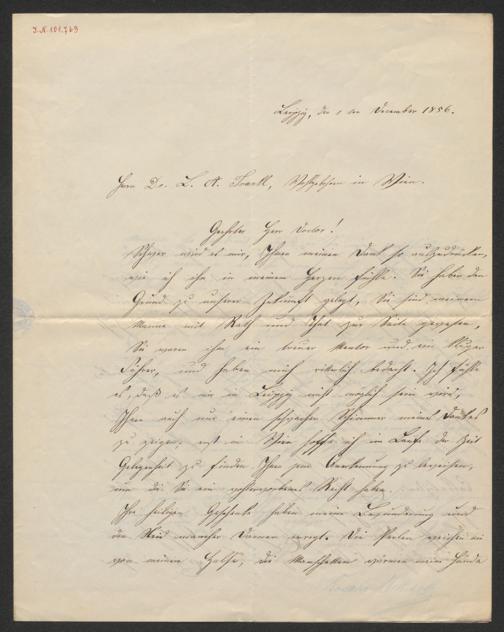 I.N. 101.769
Leipzig, den 1 ten December 1856.
Herrn Dr. L. A. Frankl, Wohlgeboren in Wien.
Geehrter Herr Doctor!
Schwer wird es mir, Ihnen meinen Dank so auszudrücken,
wie ich ihn in meinem Herzen fühle. Sie haben den
Grund zu unsrer Zukunft gelegt, Sie sind meinem
Manne mit Rath und That zur Seite gestanden,
Sie waren ihm ein treuer Mentor und ein kluger
Führer, und haben mich bedacht. Ich fühle
es, daß es mir in Leipzig nicht möglich sein wird,
Ihnen auch nur einen schwachen Schimmer meines Dankes
zu zeigen, erst in Wien hoffe ich im Laufe der Zeit
Gelegenheit zu finden Ihnen jene Anerkennung zu beweisen,
um die Sie ein wohlerworbenes Recht haben.
Ihre Geschenke haben meine Bewunderung und
den Neid mancher Damen erregt. Die Perlen
von meinem Halse, die Manschetten wärmen meine Hände